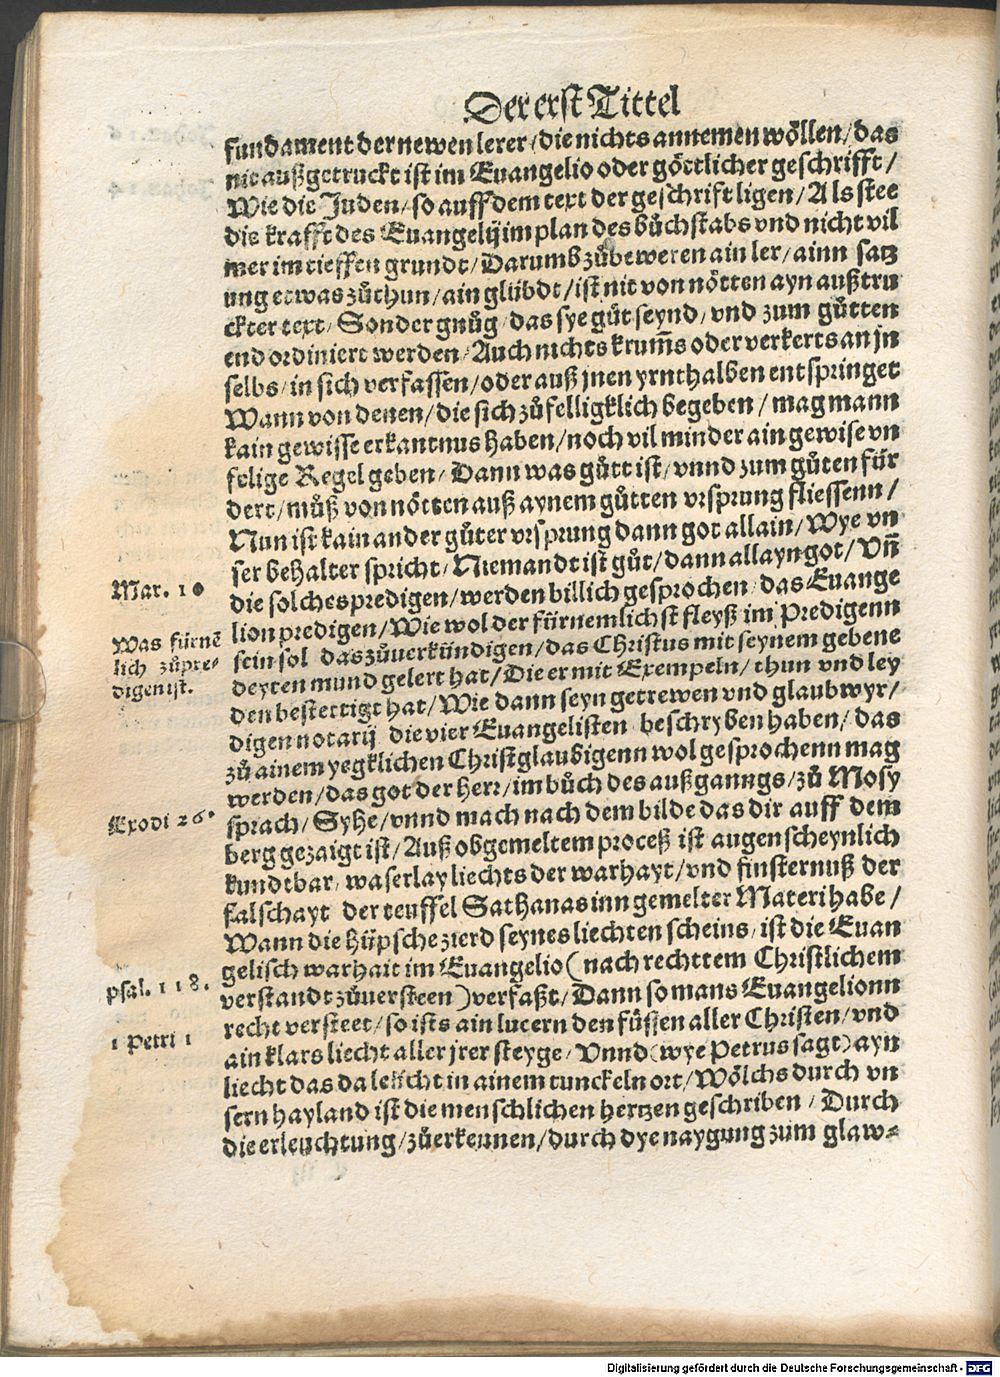 Der erst Tittel
fundament der newen lerer / die nichts annemen wöllen / das
nit außgetruckt ist im Euangelio oder göttlicher geschrifft /
Wie die Juden / so auff dem text der geschrift ligen / Als stee
die krafft des Euangelij im plan des bůchstabs vnd nicht vil
mer im tieffen grundt / Darumb zůbeweren ain ler / ainn satz
ung etwas zůthun / ain glübdt / ist nit von nötten ayn außtru
ckter text / Sonder gnůg / das sye gůt seynd / vnd zum gůtten
end ordiniert werden / Auch nichts krum̄s oder verkerts an jn
selbs / in sich verfassen / oder auß jnen yrnthalben entspringet
Wann von denen / die sich zůfelligklich begeben / mag mann
kain gewisse erkantnus haben / noch vil minder ain gewise vn
felige Regel geben / Dann was gůtt ist / vnnd zum gůten für
dert / můß von nötten auß aynem gůtten vrsprung fliessenn /
Nun ist kain ander gůter vrsprung dann got allain / Wye vn
ser behalter spricht / Niemandt ist gůt / dann allayn got / Vn̄
Mar. 10
die solches predigen / werden billich gesprochen / das Euange
lion predigen / Wie wol der fürnemlichst fleyß im Predigenn
Was fürnē
lich zůpre-
digen ist.
sein sol das zůuerkündigen / das Christus mit seynem gebene
deyten mund gelert hat / Die er mit Exempeln / thun vnd ley
den bestettigt hat / Wie dann seyn getrewen vnd glaubwyr /
digen notarij die vier Euangelisten beschryben haben / das
zů ainem yegklichen Christglaubigenn wol gesprochenn mag
werden / das got der herr / im bůch des außganngs / zů Mosy
Exodi 26.
sprach / Syhe / vnnd mach nach dem bilde das dir auff dem
berg gezaigt ist / Auß obgemeltem proceß ist augenscheynlich
kundtbar / waserlay liechts der warhayt / vnd finsternuß der
falschayt der teuffel Sathanas inn gemelter Materi habe /
Wann die hüpsche zierd seynes liechten scheins / ist die Euan
gelisch warhait im Euangelio (nach rechttem Christlichem
psal. 118.
verstandt zůuersteen) verfaßt / Dann so mans Euangelionn
recht versteet / so ists ain lucern den füssen aller Christen / vnd
1 Petri 1
ain klars liecht aller jrer steyge / Vnnd (wye Petrus sagt) ayn
liecht das da leücht in ainem tunckeln ort / Wölchs durch vn
sern hayland ist die menschlichen hertzen geschriben / Durch
die erleuchtung / zůerkennen / durch dye naygung zum glaw-
Digitalisierung gefördert durch die Deutsche Forschungsgemeinschaft - DFG